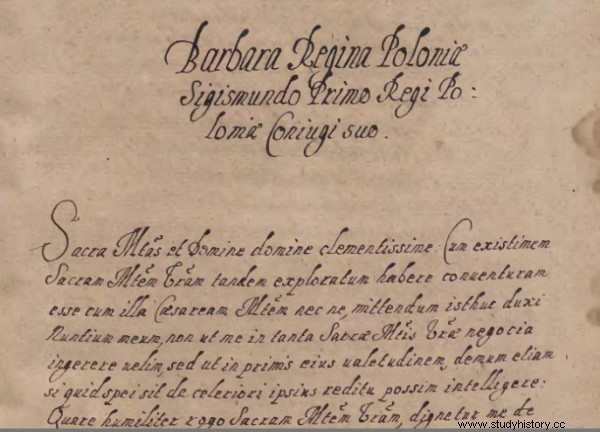 Barbara Regina Poloniæ
Sigismundo Primo Regi Po:
loniæ Coniugi suo.
Sacra Mtãs et Domine domine clementissime: Cum existimem
Sacram Mtẽm Vr̃am tandem exploratum habere conuenturam
esse cum illa Cæsaream Mtẽm nec ne, mittendum isthuc duxi
Nuntium meum, non ut me in tanta Sacræ Mtĩs Vr̃æ negocia
ingerere uelim, sed ut in primis eius ualetudinem, demum etiam
si quid spei sit de celeriori ipsius reditu possim intelligere:
Quare humiliter rogo Sacram Mtẽm Vr̃am, dignetur me de
www.studyhistory.cc